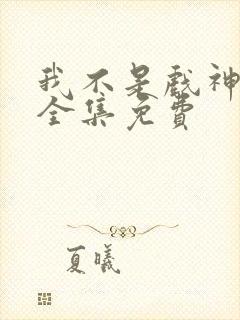 我不是戏神
全集免费
夏曦